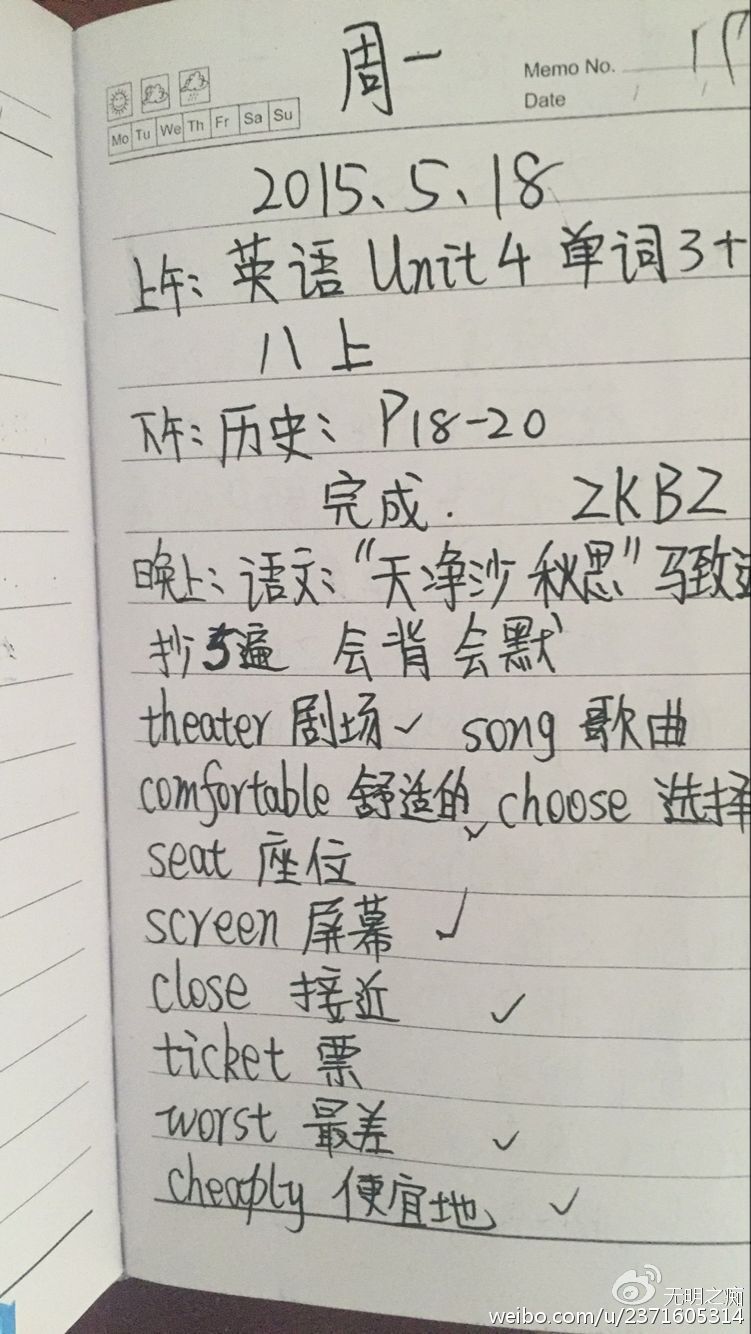 周一
Memo No.
Mo Tu We Th Fr Sa Su
Date / /
2015、5、18
上午：英语 Unit 4 单词3+
八上
下午：历史：P18-20
完成. ZKBZ
晚上：语文：“天净沙 秋思”马致
抄5遍 会背会默
theater 剧场✓ song 歌曲
comfortable 舒适的✓ choose 选择
seat 座位
screen 屏幕 ✓
close 接近 ✓
ticket 票
worst 最差 ✓
cheaply 便宜地 ✓
无明之痴
weibo.com/u/2371605314